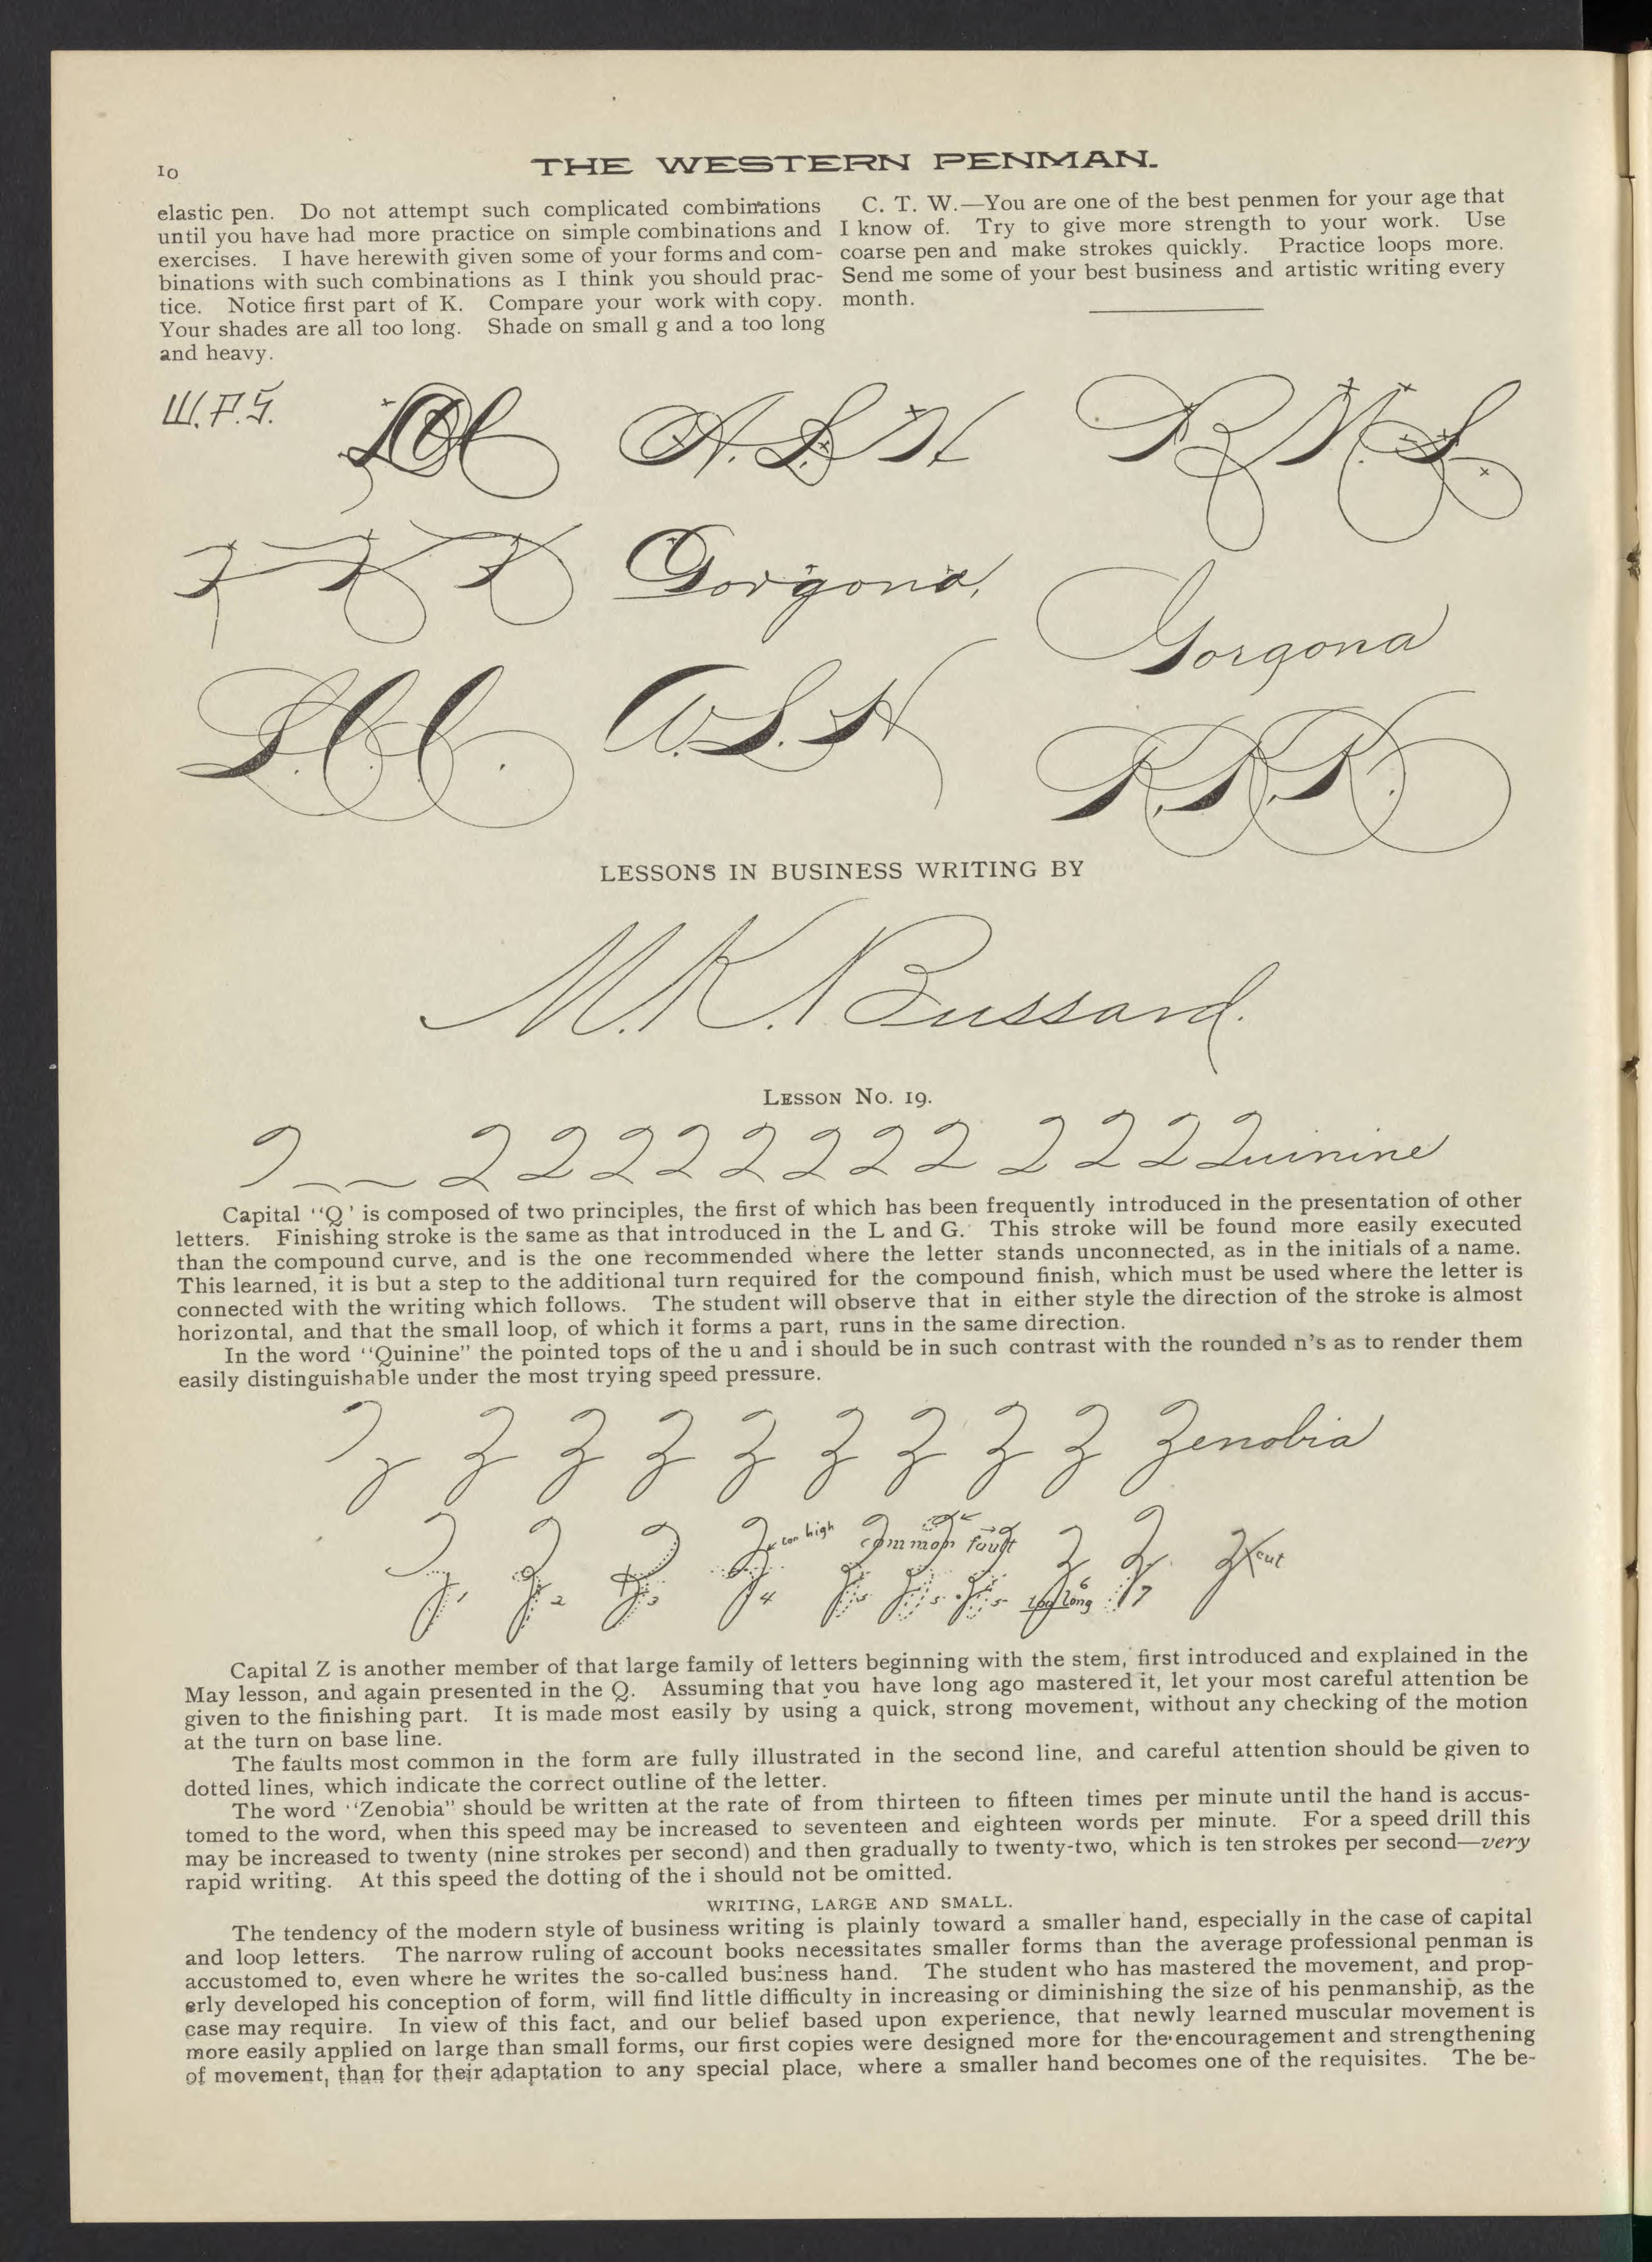 10
THE WESTERN PENMAN.
elastic pen. Do not attempt such complicated combinations
until you have had more practice on simple combinations and
exercises. I have herewith given some of your forms and com-
binations with such combinations as I think you should prac-
tice. Notice first part of K. Compare your work with copy.
Your shades are all too long. Shade on small g and a too long
and heavy.
C. T. W.—You are one of the best penmen for your age that
I know of. Try to give more strength to your work. Use
coarse pen and make strokes quickly. Practice loops more.
Send me some of your best business and artistic writing every
month.
W.P.S.
A.S.H
Gorgona,
Gorgona
A.S.H
R.R.R.
LESSONS IN BUSINESS WRITING BY
M.K. Bussard.
LESSON NO. 19.
Q Q Q Q Q Q Q Q Q Q Q Quinine
Capital "Q' is composed of two principles, the first of which has been frequently introduced in the presentation of other
letters. Finishing stroke is the same as that introduced in the L and G. This stroke will be found more easily executed
than the compound curve, and is the one recommended where the letter stands unconnected, as in the initials of a name.
This learned, it is but a step to the additional turn required for the compound finish, which must be used where the letter is
connected with the writing which follows. The student will observe that in either style the direction of the stroke is almost
horizontal, and that the small loop, of which it forms a part, runs in the same direction.
In the word "Quinine" the pointed tops of the u and i should be in such contrast with the rounded n's as to render them
easily distinguishable under the most trying speed pressure.
Z Z Z Z Z Z Z Z Zenobia
too high common fault cut
1 2 3 4 5 5 5 6 too long 7
Capital Z is another member of that large family of letters beginning with the stem, first introduced and explained in the
May lesson, and again presented in the Q. Assuming that you have long ago mastered it, let your most careful attention be
given to the finishing part. It is made most easily by using a quick, strong movement, without any checking of the motion
at the turn on base line.
The faults most common in the form are fully illustrated in the second line, and careful attention should be given to
dotted lines, which indicate the correct outline of the letter.
The word "Zenobia" should be written at the rate of from thirteen to fifteen times per minute until the hand is accus-
tomed to the word, when this speed may be increased to seventeen and eighteen words per minute. For a speed drill this
may be increased to twenty (nine strokes per second) and then gradually to twenty-two, which is ten strokes per second—very
rapid writing. At this speed the dotting of the i should not be omitted.
WRITING, LARGE AND SMALL.
The tendency of the modern style of business writing is plainly toward a smaller hand, especially in the case of capital
and loop letters. The narrow ruling of account books necessitates smaller forms than the average professional penman is
accustomed to, even where he writes the so-called business hand. The student who has mastered the movement, and prop-
erly developed his conception of form, will find little difficulty in increasing or diminishing the size of his penmanship, as the
case may require. In view of this fact, and our belief based upon experience, that newly learned muscular movement is
more easily applied on large than small forms, our first copies were designed more for the encouragement and strengthening
of movement, than for their adaptation to any special place, where a smaller hand becomes one of the requisites. The be-